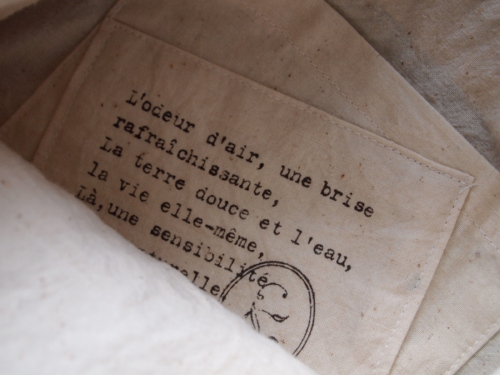 L'odeur d'air, une brise
rafraîchissante,
La terre douce et l'eau,
la vie elle-même,
Là,une sensibilité